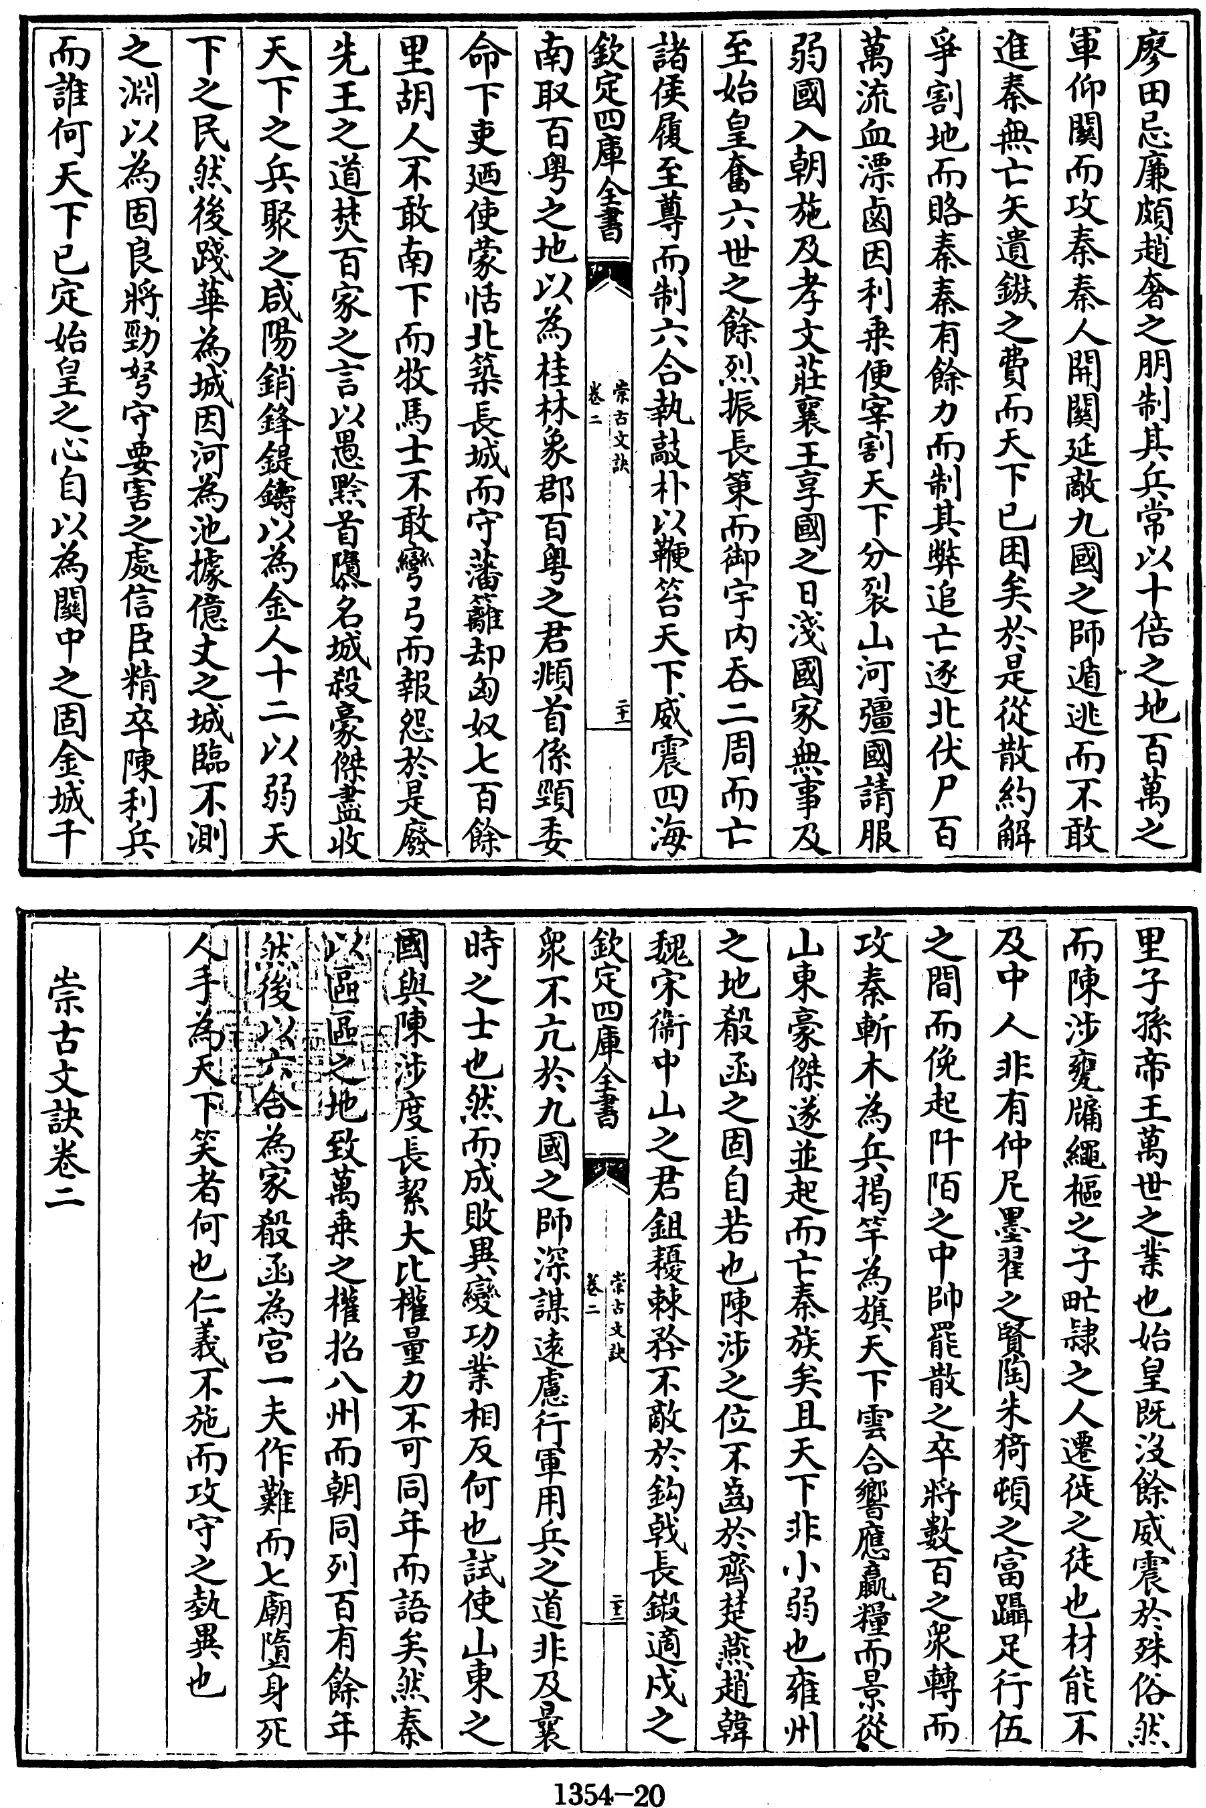 廖田忌廉頗趙奢之朋制其兵常以十倍之地百萬之
軍仰關而攻秦秦人開關延敵九國之師遁逃而不敢
進秦無亡矢遺鏃之費而天下已困矣於是從散約解
爭割地而賂秦秦有餘力而制其弊追亡逐北伏尸百
萬流血漂鹵因利乗便宰割天下分裂山河彊國請服
弱國入朝施及孝文莊襄王享國之日淺國家無事及
至始皇奮六世之餘烈振長策而御宇内吞二周而亡
諸侯履至尊而制六合執敲朴以鞭笞天下威震四海
欽定四庫全書
崇古文訣
卷二
二十一
南取百粵之地以為桂林象郡百粵之君頫首係頸委
命下吏廼使蒙恬北築長城而守藩籬却匈奴七百餘
里胡人不敢南下而牧馬士不敢彎弓而報怨於是廢
先王之道焚百家之言以愚黔首隳名城殺豪傑盡收
天下之兵聚之咸陽銷鋒鍉鑄以為金人十二以弱天
下之民然後踐華為城因河為池據億丈之城臨不測
之淵以為固良將勁弩守要害之處信臣精卒陳利兵
而誰何天下已定始皇之心自以為關中之固金城千
里子孫帝王萬世之業也始皇既沒餘威震於殊俗然
而陳涉甕牖繩樞之子甿隸之人遷徙之徒也材能不
及中人非有仲尼墨翟之賢陶朱猗頓之富躡足行伍
之間而俛起阡陌之中帥罷散之卒將數百之衆轉而
攻秦斬木為兵揭竿為旗天下雲合響應贏糧而景從
山東豪傑遂並起而亡秦族矣且天下非小弱也雍州
之地殽函之固自若也陳涉之位不齒於齊楚燕趙韓
魏宋衛中山之君鉏耰棘矜不敵於鈎戟長鎩適戍之
欽定四庫全書
崇古文訣
卷二
二十二
衆不亢於九國之師深謀遠慮行軍用兵之道非及曩
時之士也然而成敗異變功業相反何也試使山東之
國與陳涉度長絜大比權量力不可同年而語矣然秦
以區區之地致萬乗之權招八州而朝同列百有餘年
然後以六合為家殽函為宫一夫作難而七廟隳身死
人手為天下笑者何也仁義不施而攻守之埶異也
崇古文訣卷二
1354-20